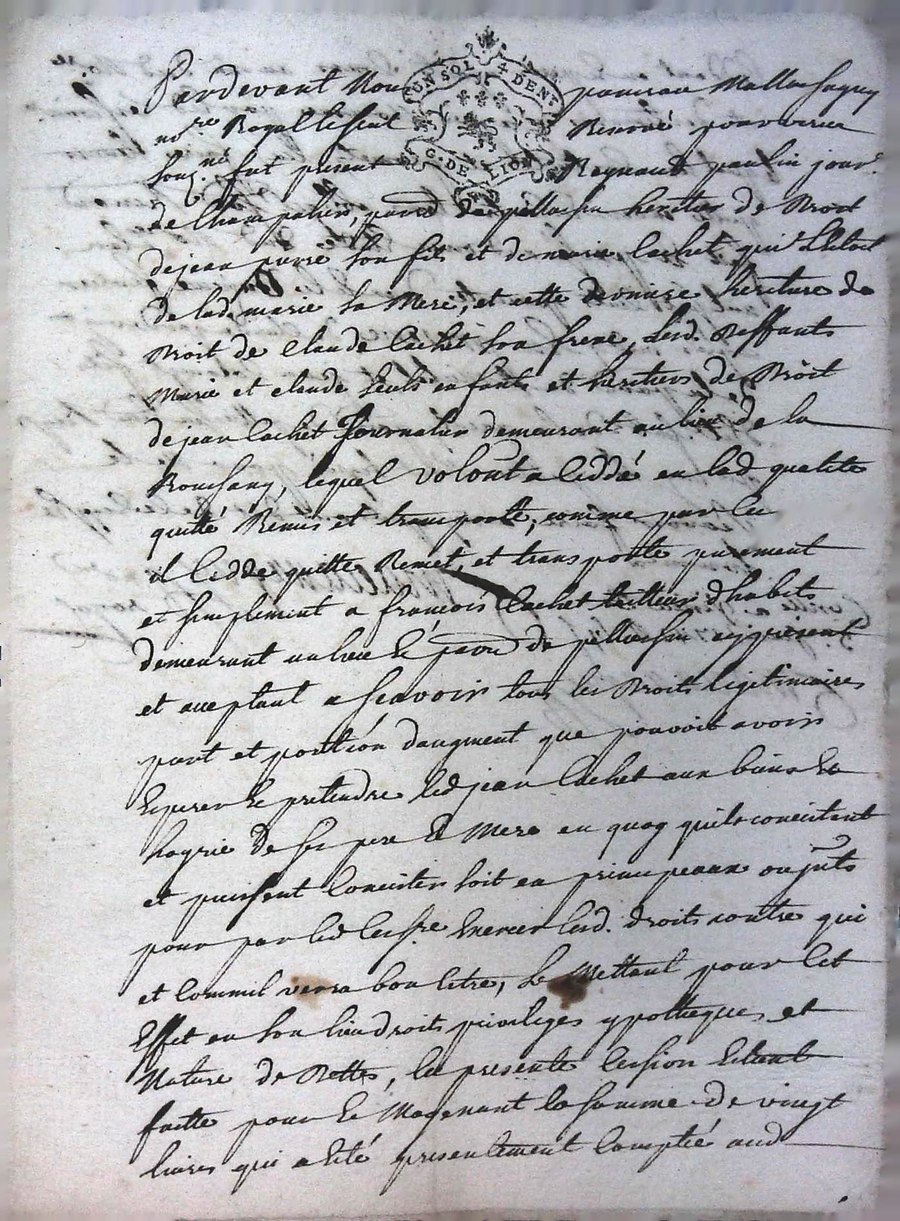 UN SOL 4 DENI
G. DE LION
Pardevant Nou
nore Royal Reservé pour
sousné fut present Regnaud paulin jour
de Champalin, paroisse de pellussin heritier de Droit
de jean pierre son fils et de marie Cachet qui l'Etoit
de lad. marie sa Mere, et cette derniere heritiere de
Droit de Claude Cachet son frere, Lesd. Deffunts
Marie et claude seuls enfants et heritiers de Droit
de jean Cachet Journalier demeurant au lieu de la
lequel volont a Ceddé en lad qualité
quitté Remis et transporté, comme par Ces
il Cedde quitte Remet, et transporte purement
et simplement a françois Cachet tailleur d'habits
demeurant au lieu Et parr de pellussin icy present
et acceptant a scavoir tous les Droits legitimaires
part et portion daugment que pouvoit avoir
Esperer Et pretendre led jean Cachet aux biens Et
hoyrie de ses pere Et Mere en quoy quils concistent
et puissent Concister soit en principeaux ou
pour par led Cessre Exercer lesd. droits contre qui
et Comm'il verra bon Estre, Le Mettant pour Cet
Effet en son lieu droits privileges ypotheques et
Nature de Dette, la presente Cession Estant
faitte pour Et Moyenant la somme de vingt
livres qui a Eté presentement Comptée aud